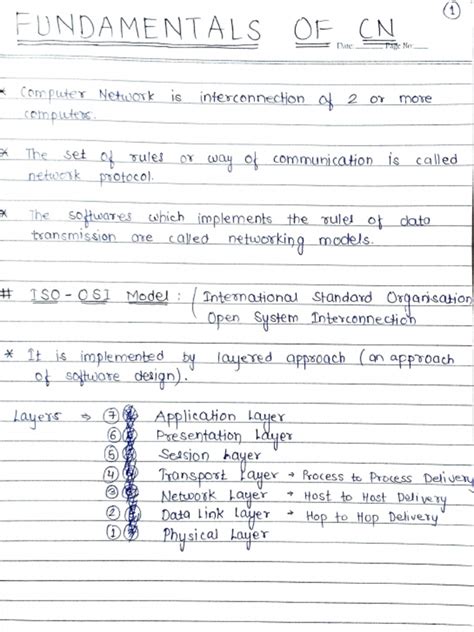 1
FUNDAMENTALS OF CN
Date Page No
* Computer Network is interconnection of 2 or more
computers.
* The set of rules or way of communication is called
network protocol.
* The softwares which implements the rules of data
transmission are called networking models.
# ISO-OSI Model : ( International Standard Organisation
Open System Interconnection
* It is implemented by layered approach (an approach
of software design).
Layers → 7 Application Layer
6 Presentation Layer
5 Session Layer
4 Transport Layer → Process to Process Delivery
3 Network Layer → Host to Host Delivery
2 Data Link Layer → Hop to Hop Delivery
1 Physical Layer